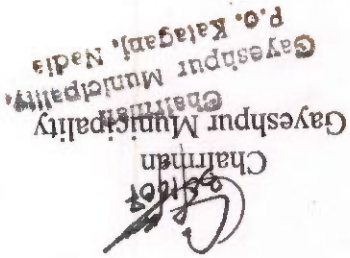 Chairman
Gayeshpur Municipality
Chairman
Gayeshpur Municipality,
P.O. Kataganj, Nadia